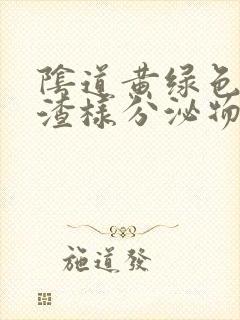 陰道黄绿色
渣樣分泌物
施道發